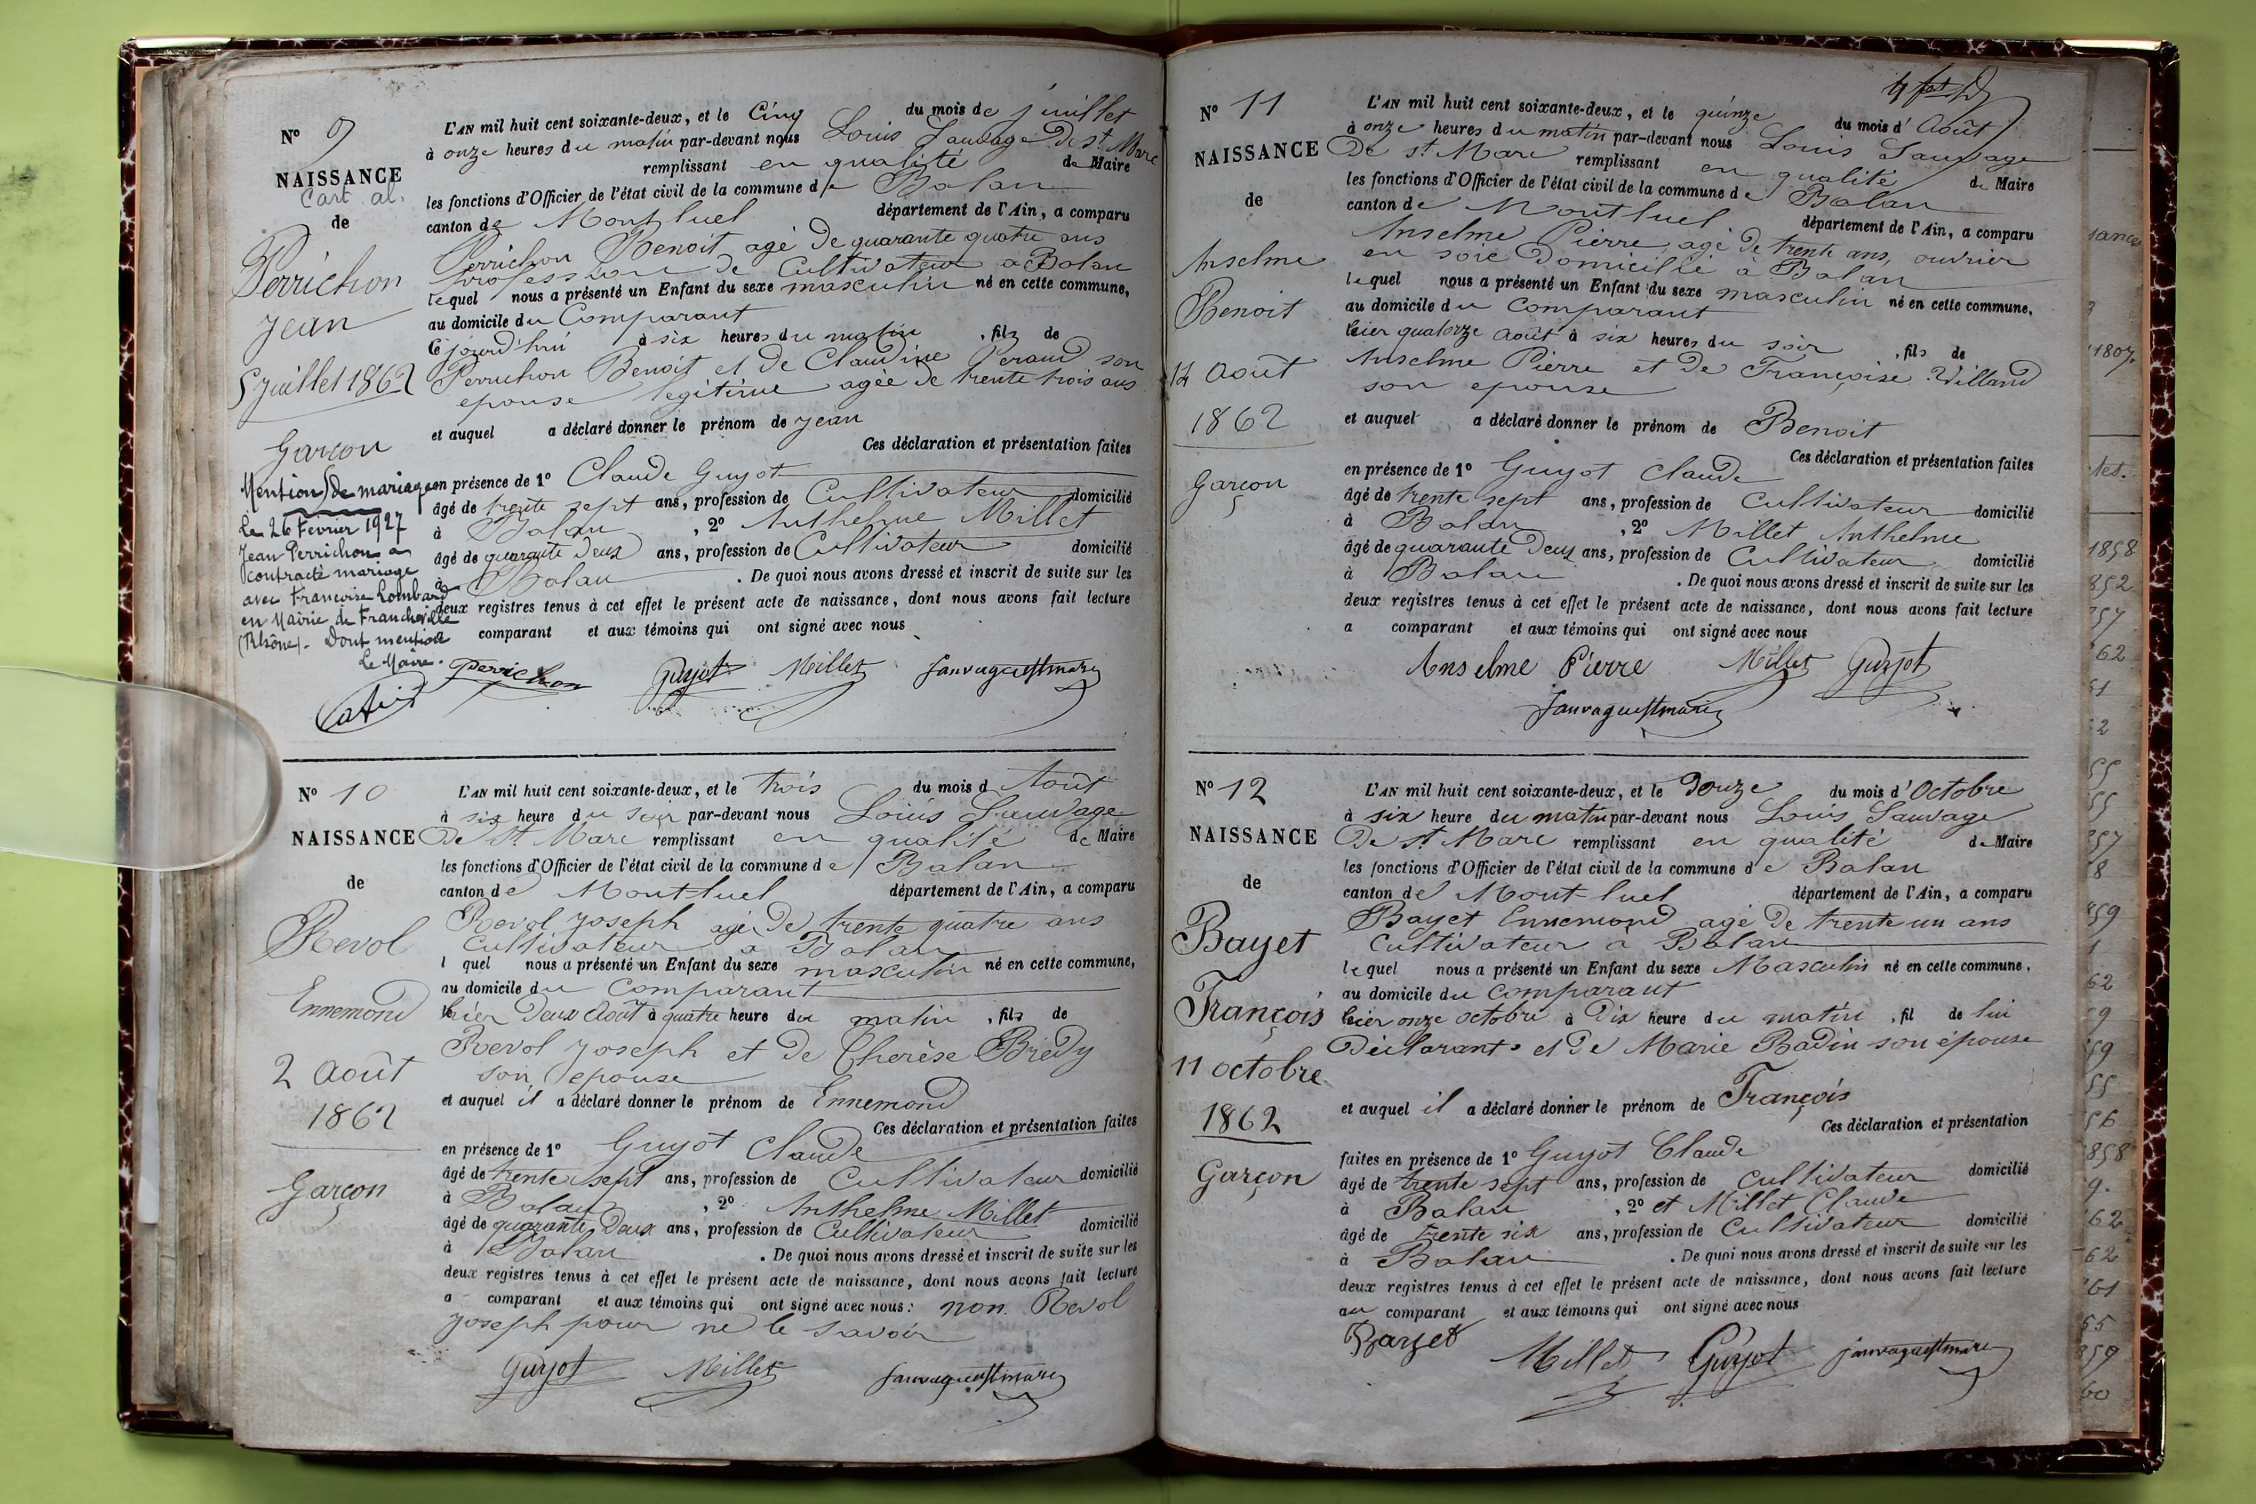 N° 9
NAISSANCE
Cart. al.
de
Perrichon
Jean
5 juillet 1862
Garçon
Mention de mariage
Le 26 Février 1927
Jean Perrichon a
contracté mariage
avec Françoise Lombard
en Mairie de Francheville
(Rhône). Dont mention
Le Maire.
L'AN mil huit cent soixante-deux, et le Cinq du mois de juillet
à onze heures du matin par-devant nous Louis Sauvage De St. Marc
remplissant en qualité de Maire
les fonctions d'Officier de l'état civil de la commune de Balan
canton de Montluel département de l'Ain, a comparu
Perrichon Benoit agé de quarante quatre ans
profession de Cultivateur à Balan
lequel nous a présenté un Enfant du sexe masculin né en cette commune,
au domicile du Comparant
Cejourd'hui à six heures du matin, fils de
Perrichon Benoit et de Claudine Peraud son
epouse legitime agée de trente trois ans
et auquel a déclaré donner le prénom de Jean
Ces déclaration et présentation faites
en présence de 1° Claude Guyot
âgé de trente sept ans, profession de Cultivateur domicilié
à Balan, 2° Anthelme Millet
âgé de quarante Deux ans, profession de Cultivateur domicilié
à Balan. De quoi nous avons dressé et inscrit de suite sur les
deux registres tenus à cet effet le présent acte de naissance, dont nous avons fait lecture
a comparant et aux témoins qui ont signé avec nous
Perrichon Guyot Millet Sauvagedestmarc
N° 10
NAISSANCE
de
Revol
Ennemond
2 Août
1862
Garçon
L'AN mil huit cent soixante-deux, et le trois du mois d Août
à six heure du soir par-devant nous Louis Sauvage
De St Marc remplissant en qualité de Maire
les fonctions d'Officier de l'état civil de la commune de Balan
canton de Montluel département de l'Ain, a comparu
Revol Joseph agé De trente quatre ans
Cultivateur à Balan
l quel nous a présenté un Enfant du sexe masculin né en cette commune,
au domicile du Comparant
hier Deux Août à quatre heure du matin, fils de
Revol Joseph et de Therèse Bredy
son epouse
et auquel il a déclaré donner le prénom de Ennemond
Ces déclaration et présentation faites
en présence de 1° Guyot Claude
âgé de trente sept ans, profession de Cultivateur domicilié
à Balan, 2° Anthelme Millet
âgé de quarante Deux ans, profession de Cultivateur domicilié
à Balan. De quoi nous avons dressé et inscrit de suite sur les
deux registres tenus à cet effet le présent acte de naissance, dont nous avons fait lecture
a comparant et aux témoins qui ont signé avec nous: non Revol
Joseph pour ne le savoir
Guyot Millet Sauvagedestmarc
N° 11
NAISSANCE
de
Anselme
Benoit
14 Août
1862
Garçon
L'AN mil huit cent soixante-deux, et le quinze du mois d' Août
à onze heures du matin par-devant nous Louis Sauvage
De St Marc remplissant en qualité de Maire
les fonctions d'Officier de l'état civil de la commune de Balan
canton de Montluel département de l'Ain, a comparu
Anselme Pierre, agé de trente ans, ouvrier
en soie Domicilié à Balan
lequel nous a présenté un Enfant du sexe masculin né en cette commune,
au domicile du Comparant
hier quatorze Août à six heures du soir, fils de
Anselme Pierre et De Françoise Villand
son epouse
et auquel a déclaré donner le prénom de Benoit
Ces déclaration et présentation faites
en présence de 1° Guyot Claude
âgé de trente sept ans, profession de Cultivateur domicilié
à Balan, 2° Millet Anthelme
âgé de quarante Deux ans, profession de Cultivateur domicilié
à Balan. De quoi nous avons dressé et inscrit de suite sur les
deux registres tenus à cet effet le présent acte de naissance, dont nous avons fait lecture
a comparant et aux témoins qui ont signé avec nous
Anselme Pierre Millet Guyot
Sauvagedestmarc
N° 12
NAISSANCE
de
Bayet
François
11 octobre
1862
Garçon
L'AN mil huit cent soixante-deux, et le Douze du mois d' Octobre
à six heure du matin par-devant nous Louis Sauvage
De St Marc remplissant en qualité de Maire
les fonctions d'Officier de l'état civil de la commune de Balan
canton de Montluel département de l'Ain, a comparu
Bayet Ennemond agé De trente un ans
Cultivateur à Balan
lequel nous a présenté un Enfant du sexe Masculin né en cette commune,
au domicile du Comparant
hier onze octobre à Dix heure du matin, fil de lui
Déclarant et De Marie Badin son épouse
et auquel il a déclaré donner le prénom de François
Ces déclaration et présentation
faites en présence de 1° Guyot Claude
âgé de trente sept ans, profession de Cultivateur domicilié
à Balan, 2° et Millet Claude
âgé de trente six ans, profession de Cultivateur domicilié
à Balan. De quoi nous avons dressé et inscrit de suite sur les
deux registres tenus à cet effet le présent acte de naissance, dont nous avons fait lecture
au comparant et aux témoins qui ont signé avec nous
Bayet Millet Guyot Sauvagedestmarc